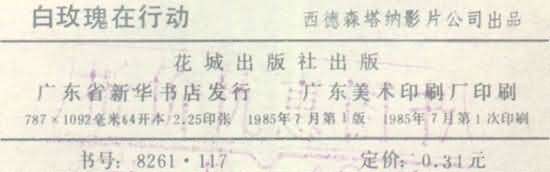 白玫瑰在行动 西德森塔纳影片公司出品
花城出版社出版
广东省新华书店发行 广东美术印刷厂印刷
787×1092毫米64开本/2.25印张 1985年7月第1版 1985年7月第1次印刷
书号：8261·117 定价：0.31元